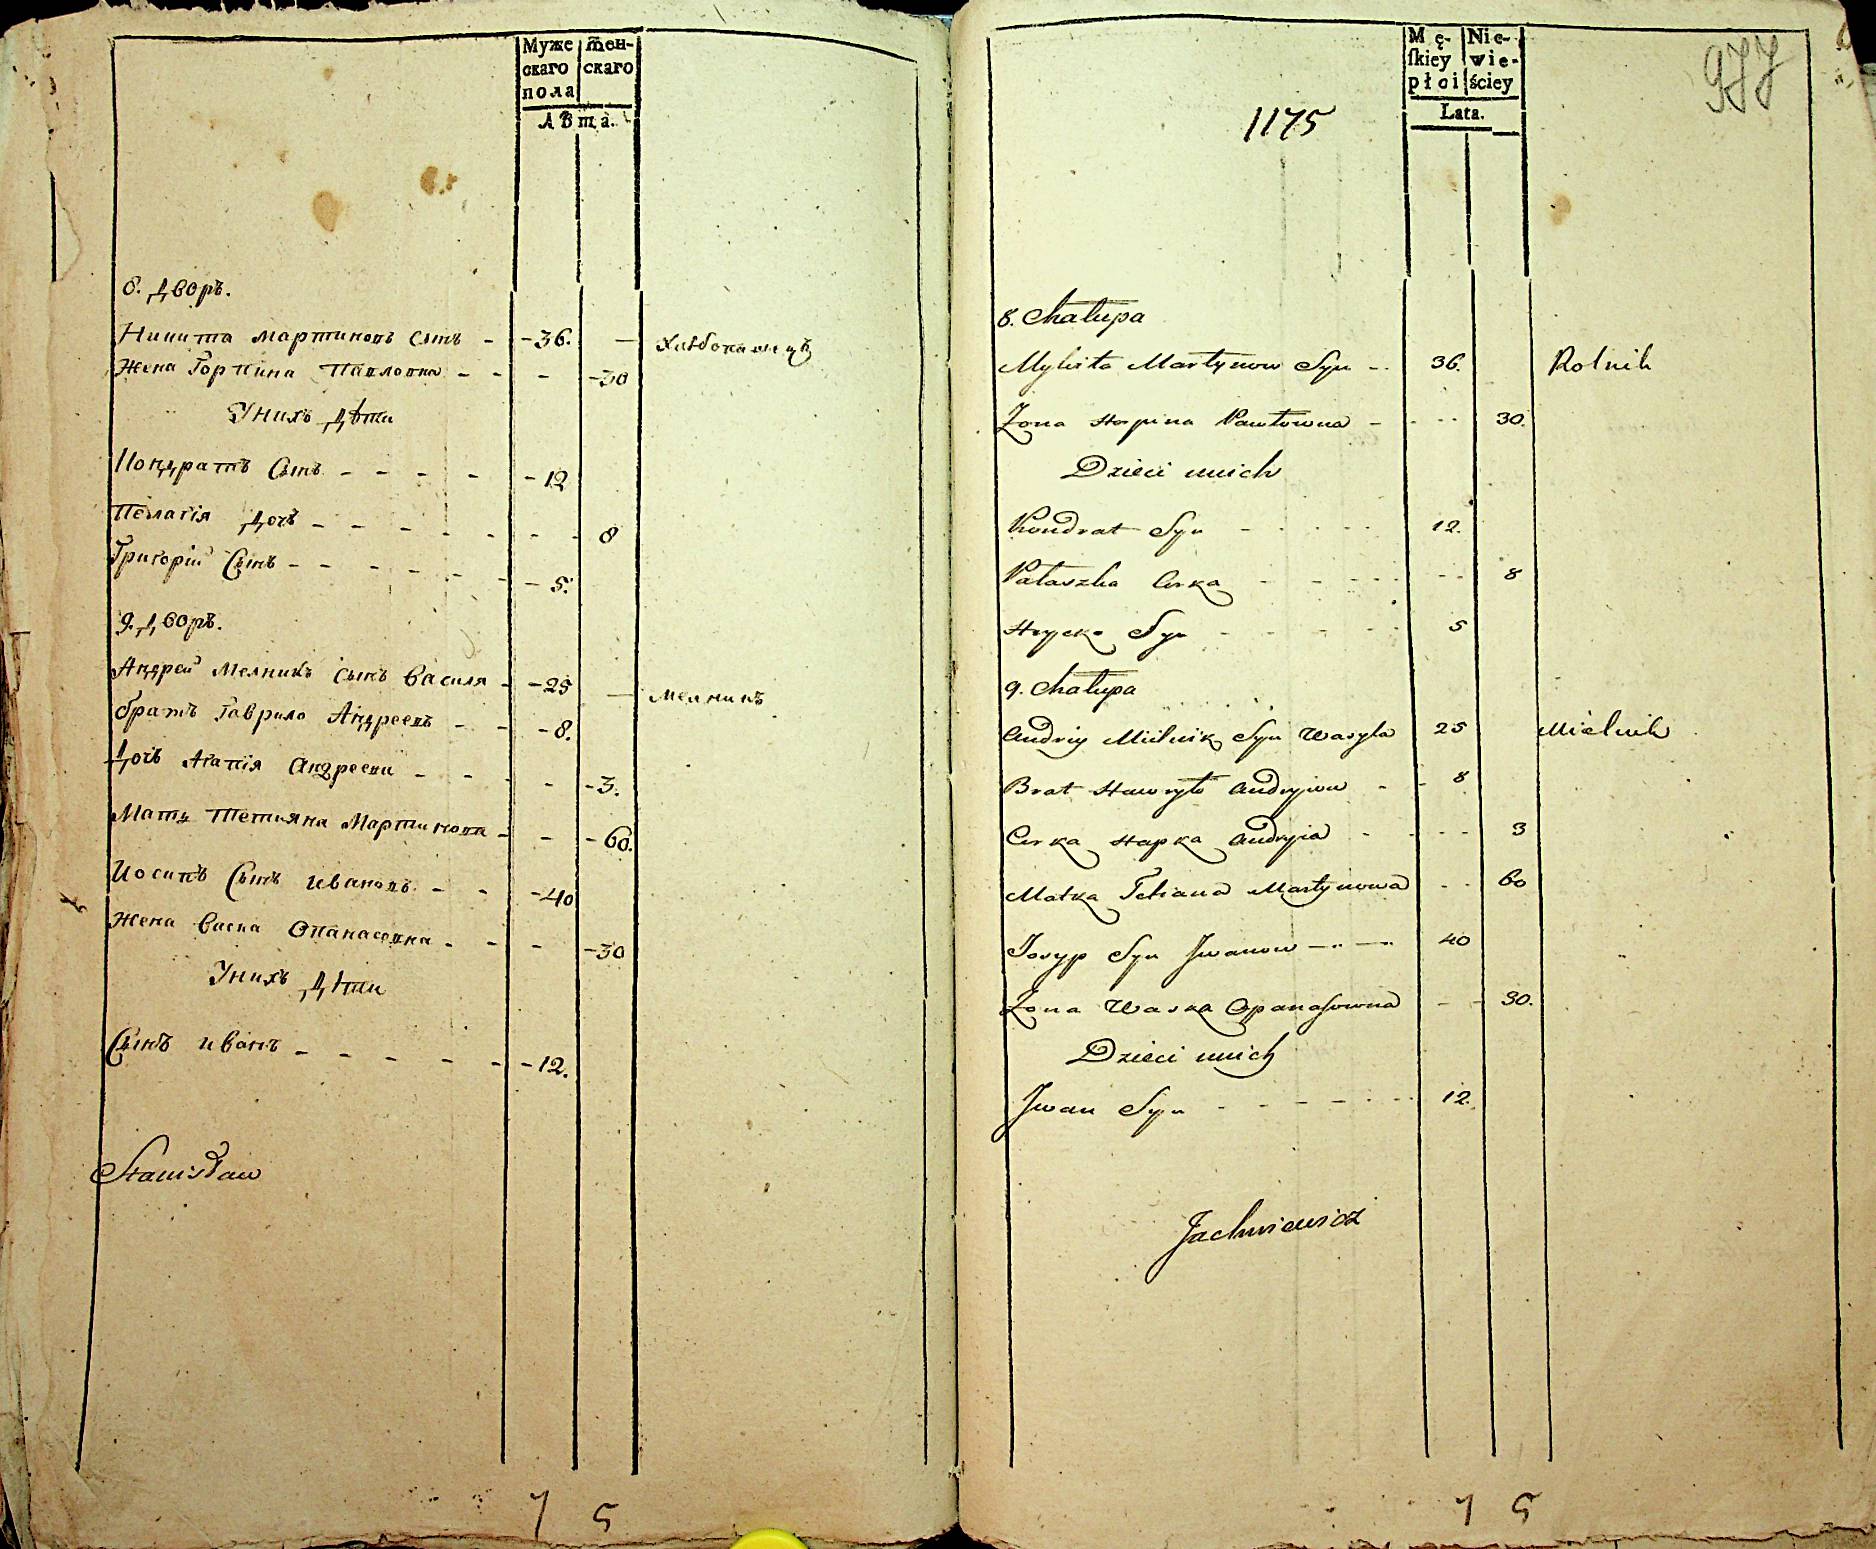 Муже
скаго
пола
Жен-
скаго
Лѣта.
8. Дворъ.
Никита Мартиновъ Сынъ - -36. - Хлѣбопашецъ
Жена Горпина Павловна - - - -30
У нихъ Дѣти
Кондратъ Сынъ - - - - -12
Пелагія Дочь - - - - - - - 8
Григорій Сынъ - - - - - - -5.
9. Дворъ.
Андрей Мелникъ Сынъ Василя - -25 - Мелникъ
братъ Гаврило Андреевъ - - -8.
Дочь Агапія Андреева - - - - -3.
Мать Тетияна Мартинова - - -60.
Иосипъ Сынъ Ивановъ - - -40
Жена Васка Опанасовна - - - -30
У нихъ Дѣти
Сынъ Иванъ - - - - - -12.
Stanisław
7 5
Mę-
ſkiey
płci
Nie-
wie-
ściey
Lata.
1175
977
8. Chałupa
Mykita Martynow Syn - - 36. Rolnik
Żona Horpina Pawłowna - - - - 30.
Dzieci unich
Kondrat Syn - - - - - 12.
Pałaszka Corka - - - - - - - 8
Hrycko Syn - - - - - 5
9. Chałupa
Andriy Mielnik Syn Wasyla 25 Mielnik
Brat Hawryło Andryiow - - 8
Corka Hapka Andryia - - - - 3
Matka Tetiana Martynowa - - 60
Josyp Syn Jwanow - - 40
Żona Waska Opanasowna - - 30.
Dzieci unich
Jwan Syn - - - - - - - 12.
Jachniewicz
7 5